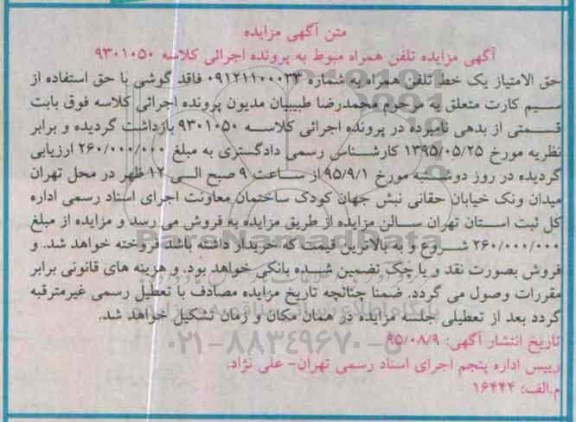 متن آگهی مزایده
آگهی مزایده تلفن همراه مبوط به پرونده اجرائی کلاسه ۹۳۰۱۰۵۰
حق الامتیاز یک خط تلفن همراه به شماره ۰۹۱۲۱۱۰۰۰۳۳ فاقد گوشی با حق استفاده از
سیم کارت متعلق به مرحوم محمدرضا طبیبیان مدیون پرونده اجرائی کلاسه فوق بابت
قسمتی از بدهی نامبرده در پرونده اجرائی کلاسه ۹۳۰۱۰۵۰ بازداشت گردیده و برابر
نظریه مورخ ۱۳۹۵/۰۵/۲۵ کارشناس رسمی دادگستری به مبلغ ۲۶۰/۰۰۰/۰۰۰ ارزیابی
گردیده در روز دوشنبه مورخ ۹۵/۹/۱ از ساعت ۹ صبح الی ۱۲ ظهر در محل تهران
میدان ونک خیابان حقانی نبش جهان کودک ساختمان معاونت اجرای اسناد رسمی اداره
کل ثبت استان تهران سالن مزایده از طریق مزایده به فروش می رسد و مزایده از مبلغ
۲۶۰/۰۰۰/۰۰۰ شروع و به بالاترین قیمت که خریدار داشته باشد فروخته خواهد شد. و
فروش بصورت نقد و یا چک تضمین شده بانکی خواهد بود. و هزینه های قانونی برابر
مقررات وصول می گردد. ضمنا چنانچه تاریخ مزایده مصادف با تعطیل رسمی غیرمترقبه
گردد بعد از تعطیلی جلسه مزایده در همان مکان و زمان تشکیل خواهد شد.
تاریخ انتشار آگهی: ۹۵/۰۸/۹
رییس اداره پنجم اجرای اسناد رسمی تهران- علی نژاد.
م.الف: ۱۶۴۴۴
ParsNamadData
۰۲۱-۸۸۳۴۹۶۷۰-۵